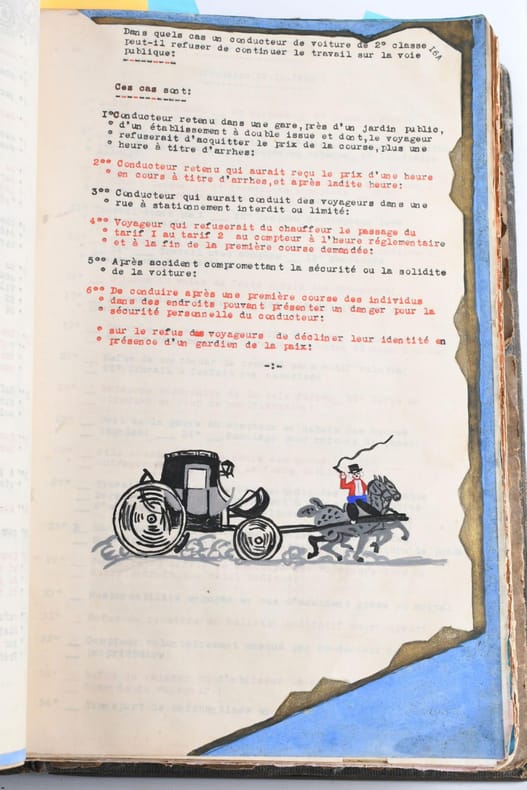 Dans quels cas un conducteur de voiture de 2° classe
peut-il refuser de continuer le travail sur la voie
publique:
16A
Ces cas sont:
1°Conducteur retenu dans une gare,près d'un jardin public,
d'un établissement à double issue et dont,le voyageur
refuserait d'acquitter le prix de la course,plus une
heure à titre d'arrhes:
2°° Conducteur retenu qui aurait reçu le prix d'une heure
en cours à titre d'arrhes,et après ladite heure:
3°° Conducteur qui aurait conduit des voyageurs dans une
rue à stationnement interdit ou limité:
4°° Voyageur qui refuserait du chauffeur le passage du
tarif I au tarif 2 au compteur à l'heure réglementaire
et à la fin de la première course demandée:
5°° Après accident compromettant la sécurité ou la solidite
de la voiture:
6°° De conduire après une première course des individus
dans des endroits pouvant présenter un danger pour la
sécurité personnelle du conducteur:
sur le refus des voyageurs de décliner leur identité en
présence d'un gardien de la paix:
-:-